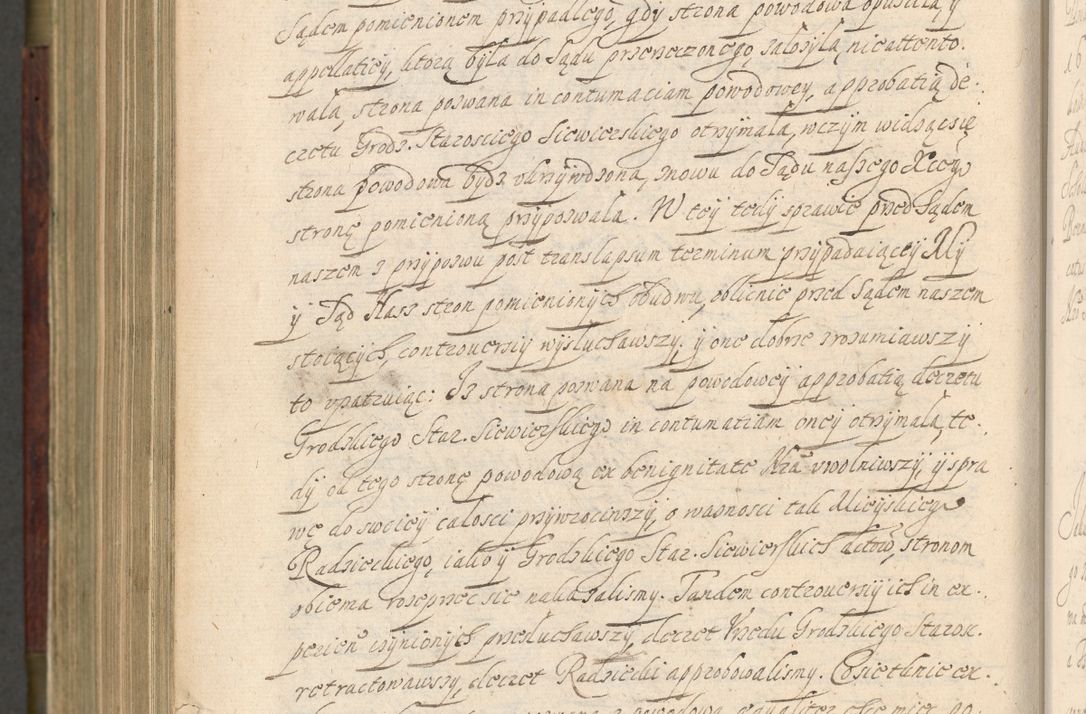 Sądem pomienionem przypadłego, gdy strona powodowa opuściła y
appellatiey, ktorą była do Sądu przerzeczonego założyła nieattento.
wała, strona pozwana in contumaciam powodowey, approbatią de.
czetu Grodz. Staroscięgo Siewierskiego otrzymała, wczym widząc się
strona powodowa bydz ukrzywdzona, znowu do Sądu naszego Xcego
stronę pomienioną przypozwała. W tey tedy sprawie przed Sądem
naszem z przypozwu post translapsum terminum przypadaiącey My
y Sąd Nasz stron pomienionych obudwu, oblicnie przed Sądem naszem
stoiących, controuersiy wysłuchawszy, y one dobrze zrozumiawszy
to vpatruiąc: Iz strona pozwana na powodowey approbatią decretu
Grodzkiego Star. Siewierskiego in contumatiam oney otrzymała, te.
dy od tego stronę powodową ex benignitate Nra vwolniwszy, y spra
wę do swoiey całosci przywrociwszy, o waznosci tak Mieyskiego
Radzieckiego, iako y Grodzkiego Star. Siewierskich aktow, stronom
obiema rozeprzec się nakazalismy. Tandem controuersiy ich in ex.
perien czynionych przesłuchawszy, decret Vrzedu Grodzkiego Staros.
retractowawszy, decret Radziecki approbowalismy. Co się tknie ex.
powodowa